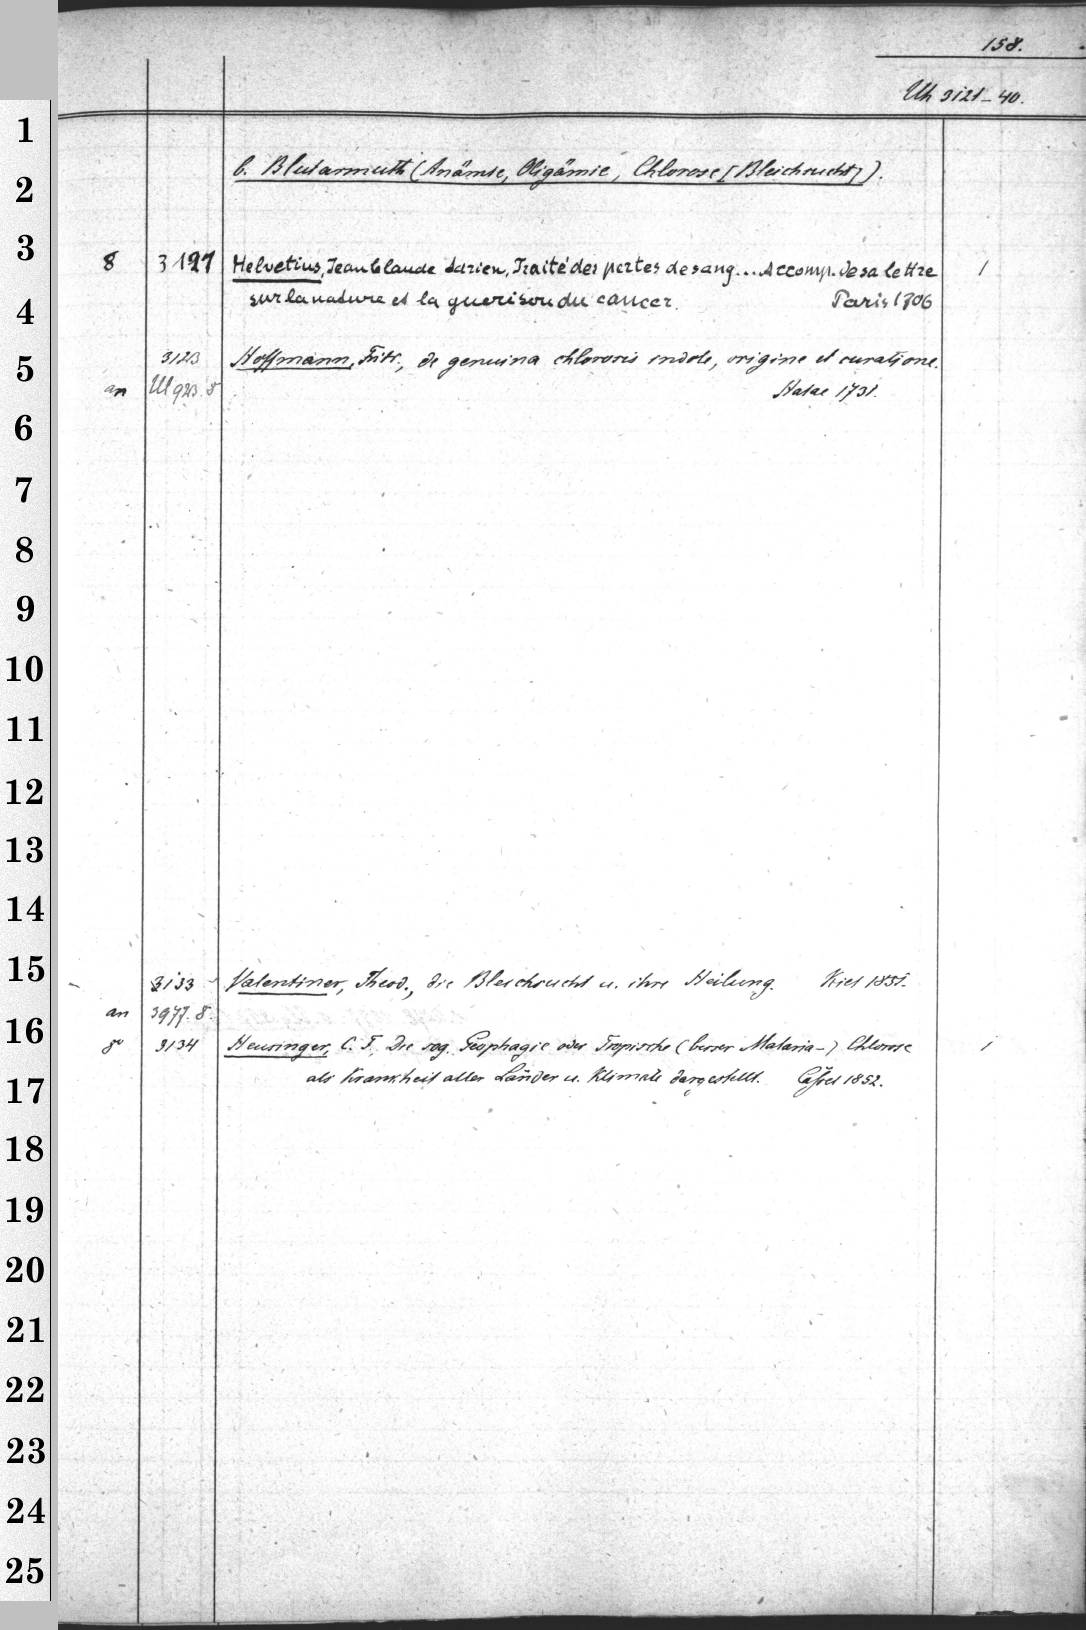 158.
Uh 3121-40.
1
2
3
4
5
6
7
8
9
10
11
12
13
14
15
16
17
18
19
20
21
22
23
24
25
b. Blutarmuth (Anämie, Oligämie, Chlorose [Bleichsucht]).
8 3127 Helvetius, Jean Claude Adrien, Traité des pertes de sang... Accomp. de sa lettre 1
sur la nature et la guerison du cancer. Paris 1706
3123 Hoffmann, Fridr., de genuina chlorosis indole, origine et curatione.
an Ul 923. 8 Halae 1731.
3133 Valentiner, Theod., die Bleichsucht u. ihre Heilung. Kiel 1851.
an 3977. 8.
8º 3134 Heusinger, C. F. Die sog. Geophagie oder Tropische (besser Malaria-) Chlorose 1
als Krankheit aller Länder u. Klimate dargestellt. Cassel 1852.